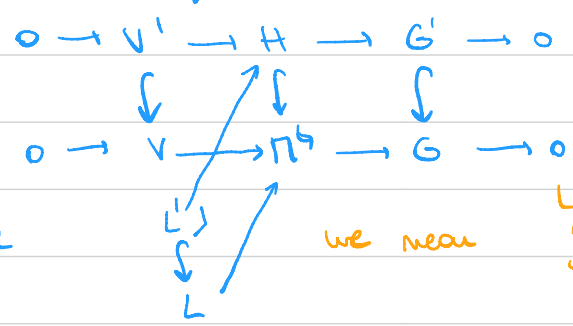 0 → V' → H → G' → 0
0 → V → Π^♮ → G → 0
L'
L
we mean